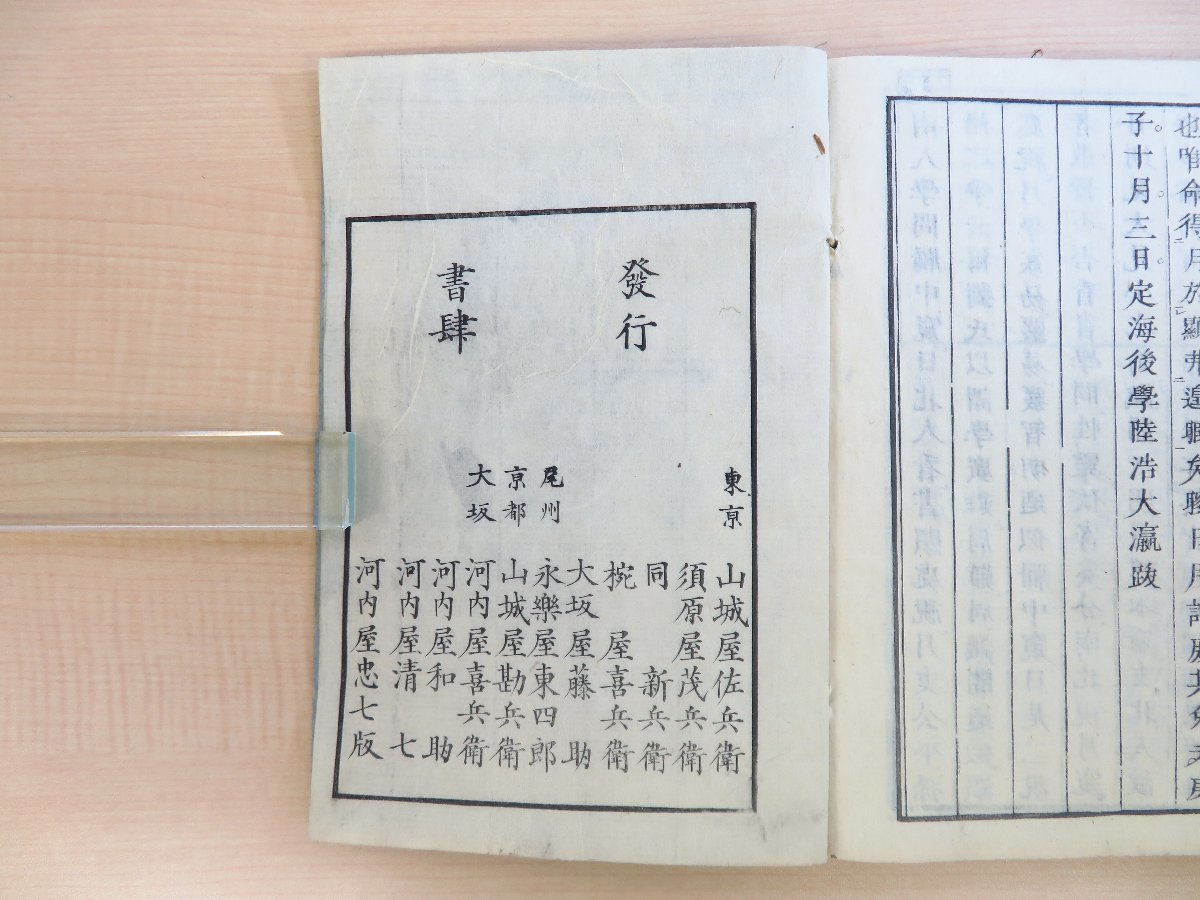 也唯命得月於顯弗遑職矣
子十月三日定海後學陸浩大瀛跋
發行
書肆
東京
山城屋佐兵衛
須原屋茂兵衛
同 新兵衛
椀屋喜兵衛
大坂屋藤助
尾州
永樂屋東四郎
京都
山城屋勘兵衛
大坂
河内屋喜兵衛
河内屋和助
河内屋清七
河内屋忠七版